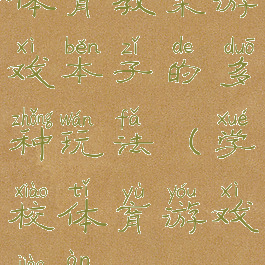 体育教案游
xì běn zǐ de duō
戏本子的多
zhǒng wán fǎ xué
种玩法（学
xiào tǐ yù yóu xì
校体育游戏
àn